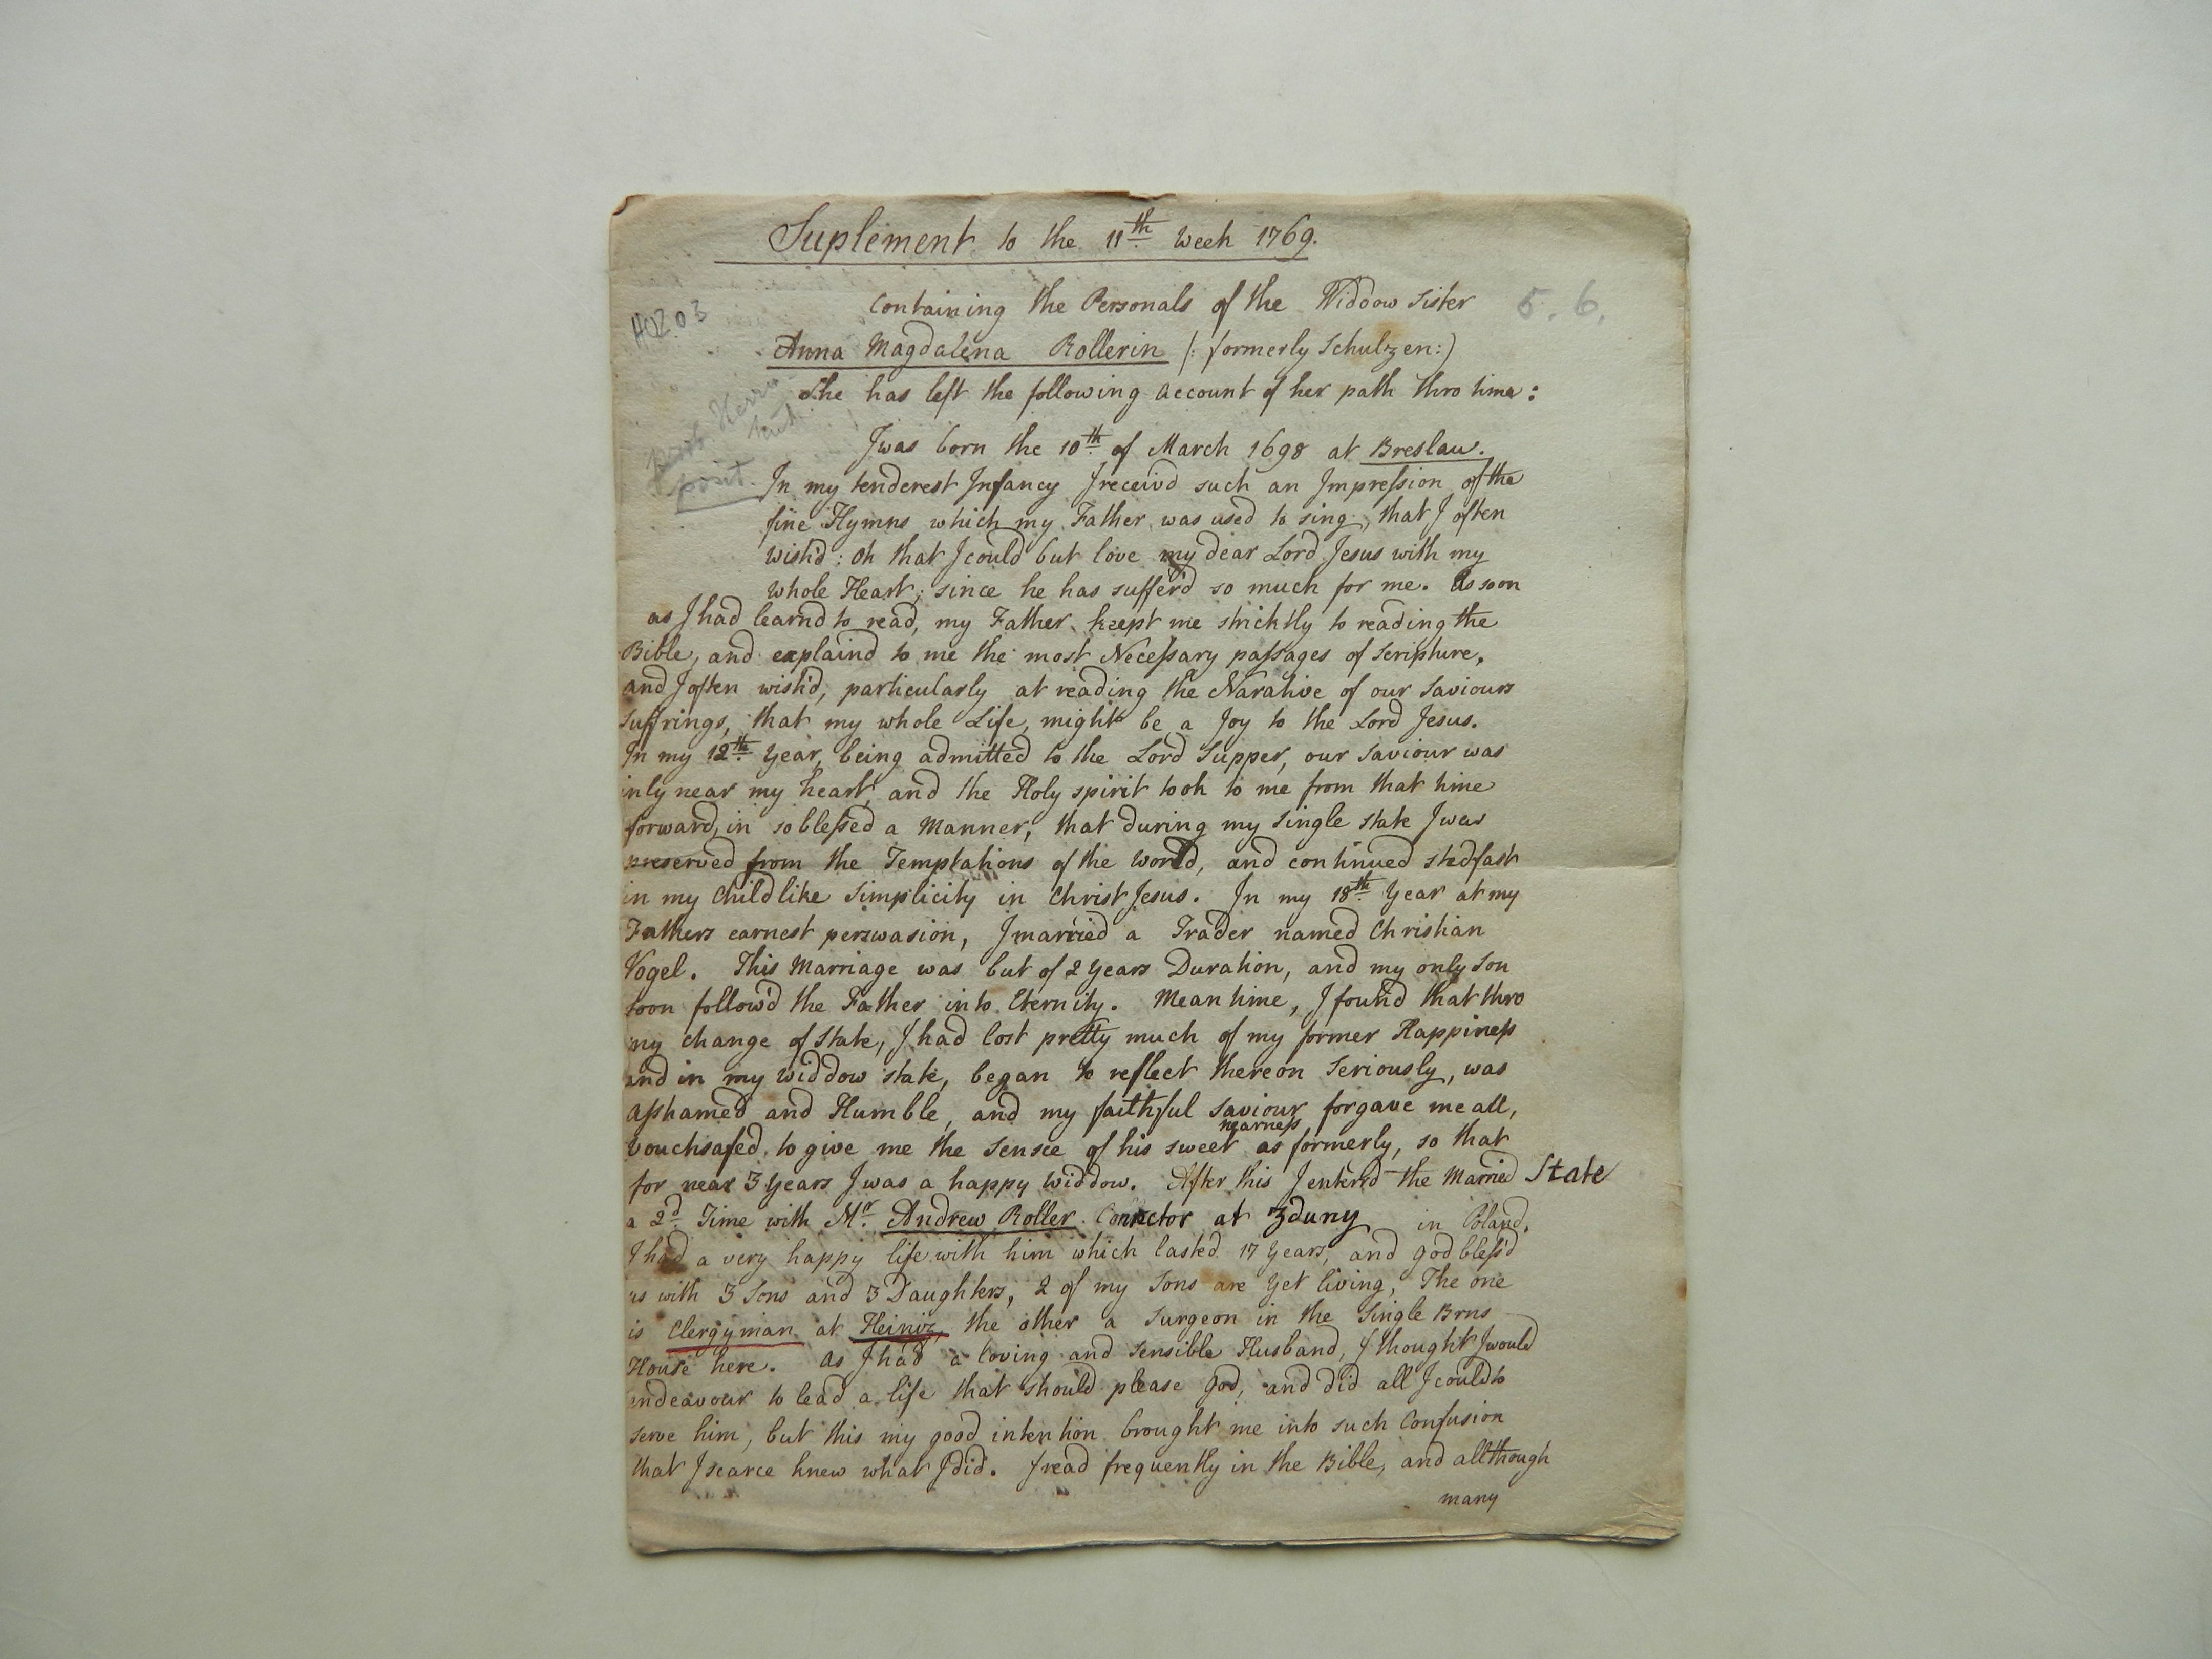 Suplement to the 11th Week 1769.
Containing the Personals of the Widdow Sister
5. 6.
Anna Magdalena Rollerin (: formerly Schulzen:)
She has left the following account of her path thro time:
I was born the 10th of March 1698 at Breslau.
In my tenderest Infancy I receivd such an Impression of the
fine Hymns which my Father was used to sing, that I often
wish'd: Oh that I could but love my dear Lord Jesus with my
whole Heart; since he has sufferd so much for me. As soon
as I had learnd to read, my Father keept me stricktly to reading the
Bible, and explaind to me the most Necessary passages of Scripture,
and I often wish'd, particularly at reading the Narative of our Saviours
suffrings, that my whole Life, might be a Joy to the Lord Jesus.
In my 12th Year, being admitted to the Lord Supper, our Saviour was
inly near my heart, and the Holy spirit took to me from that time
forward, in so blessed a Manner, that during my single state I was
preserved from the Temptations of the World, and continued stedfast
in my Childlike Simplicity in Christ Jesus. In my 18th Year at my
Fathers earnest perswasion, I married a Trader named Christian
Vogel. This Marriage was but of 2 Years Duration, and my only Son
soon follow'd the Father into Eternity. Mean time, I found that thro
my change of State, I had lost pretty much of my former Happiness
and in my Widdow state, began to reflect thereon Seriously, was
ashamed and Humble, and my faithful Saviour forgave me all,
nearness
Vouchsafed, to give me the Sensee of his sweet as formerly, so that
for near 3 Years I was a happy Widdow. After this I enterd the Married State
a 2d Time with Mr Andrew Roller. Conrector at Zduny in Poland.
I had a very happy life with him which lasted 17 Years, and God bless'd
us with 3 Sons and 3 Daughters, 2 of my Sons are Yet living, The one
is Clergyman at the other a Surgeon in the Single Brns
House here. As I had a loving and Sensible Husband, I thought I would
endeavour to lead a life that should please God, and did all I could to
serve him, but this my good intention brought me into such Confusion
that I scarce knew what I did. I read frequently in the Bible, and allthough
many